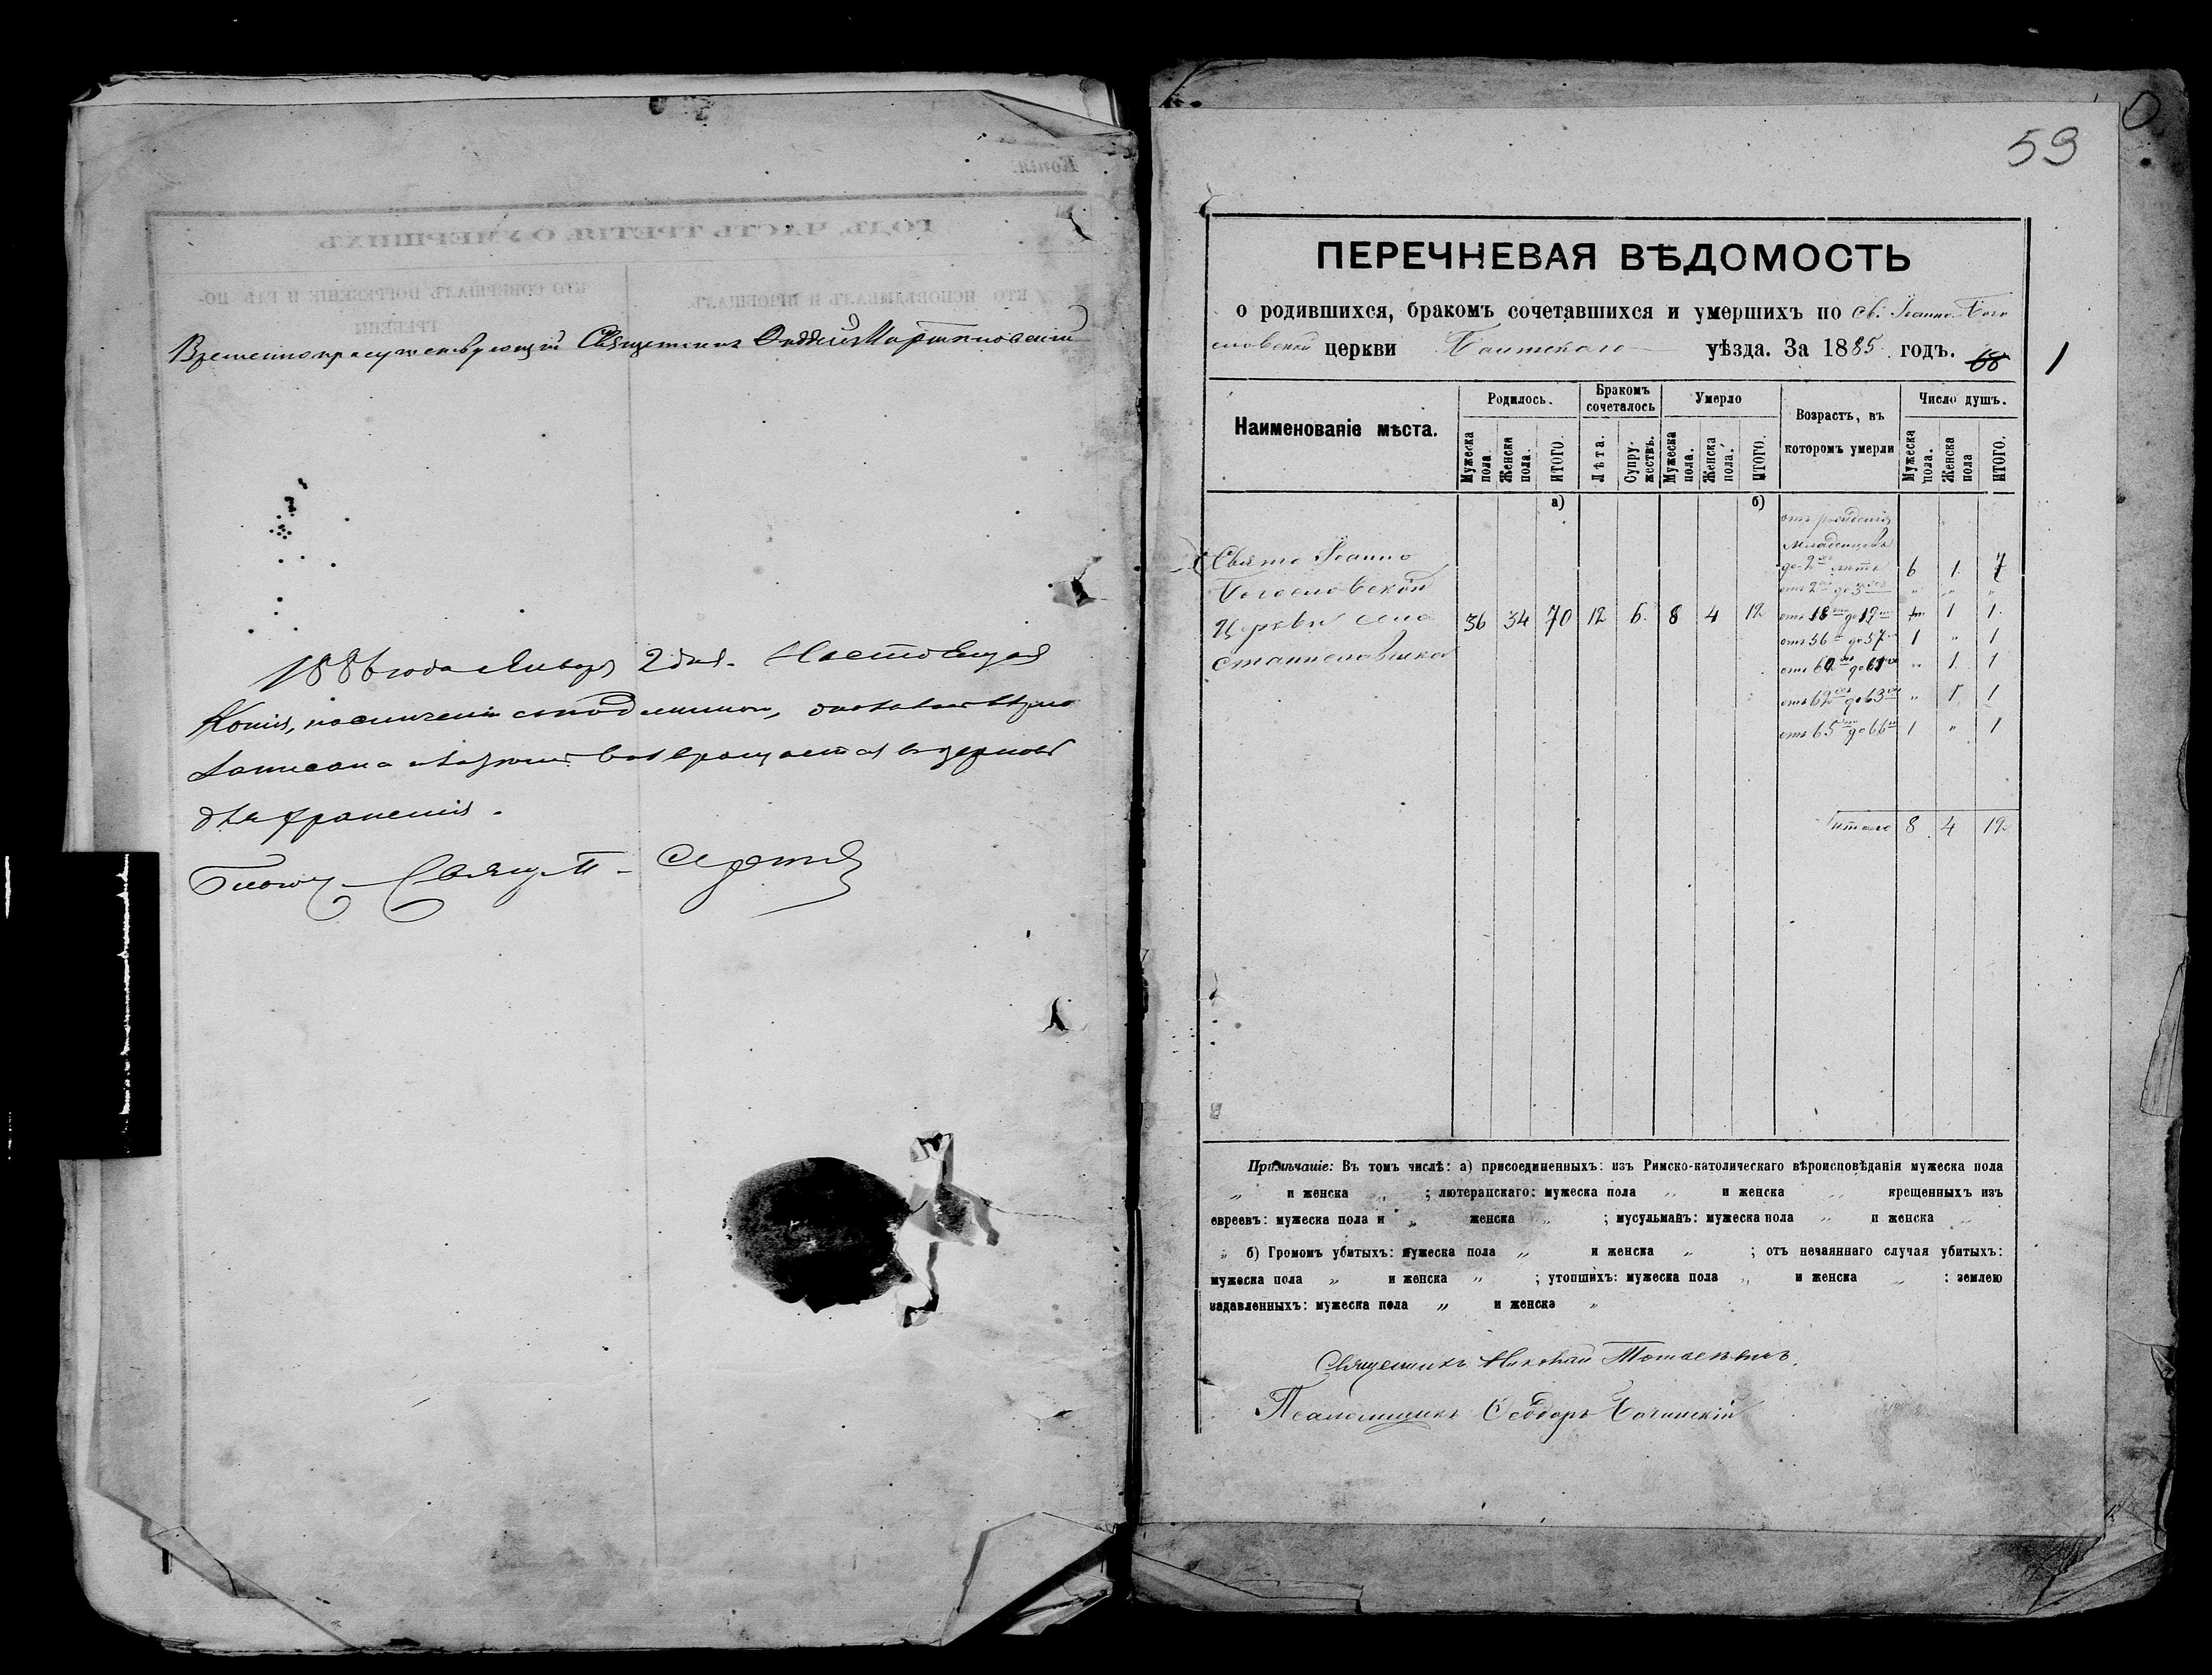 Копія.
ГОДЪ, ЧАСТЬ ТРЕТІЯ, О УМЕРШИХЪ
КТО ИСПОВѢДЫВАЛЪ И ПРІОБЩАЛЪ.
КТО СОВЕРШАЛЪ ПОГРЕБЕНІЕ И ГДѢ ПО-
ГРЕБЕНЫ
Священникъ
1886 года Января 2 дня. Настоящая
Копія, по сличеніи съ подлинникомъ, оказалась вѣрно
записана а потому возвращается въ церковь
для храненія.
Благоч. Свящ. П.
59
ПЕРЕЧНЕВАЯ ВѢДОМОСТЬ
о родившихся, бракомъ сочетавшихся и умершихъ по Св. Іоанно-Бого
словской церкви Балтскаго уѣзда. За 1885 годъ.
Наименованіе мѣста. Родилось. Бракомъ сочеталось Умерло Возрастъ, въ которомъ умерли Число душъ.
Мужеска пола. Женска пола. ИТОГО. Лѣта. Супружествъ. Мужеска пола. Женска пола. ИТОГО. Мужеска пола. Женска пола ИТОГО.
а) б)
отъ рожденія
Младенцевъ
Свято Іоанно до 2хъ лѣтъ 6 1. 7
Богословской отъ 2хъ до 3хъ „ „ „
Церкви села 36 34 70 12 6. 8 4 12 отъ 18 до 19 1 1.
Станиславчика отъ 56 до 57 1 „ 1
отъ 60 до 61 „ 1. 1
отъ 62хъ до 63хъ „ 1 1
отъ 65 до 66 1 „ 1
Итого 8 4 12
Примѣчаніе: Въ томъ числѣ: а) присоединенныхъ: изъ Римско-католическаго вѣроисповѣданія мужеска пола
„ и женска „ ; лютеранскаго: мужеска пола „ и женска „ крещенныхъ изъ
евреевъ: мужеска пола и „ женска „ ; мусульманъ: мужеска пола „ и женска „
„ б) Громомъ убитыхъ: мужеска пола „ и женска „ ; отъ нечаяннаго случая убитыхъ:
мужеска пола „ и женска „ ; утопшихъ: мужеска пола „ и женска „ : землею
задавленныхъ: мужеска пола „ и женска „
Священникъ Николай
Псаломщикъ Ѳеодоръ